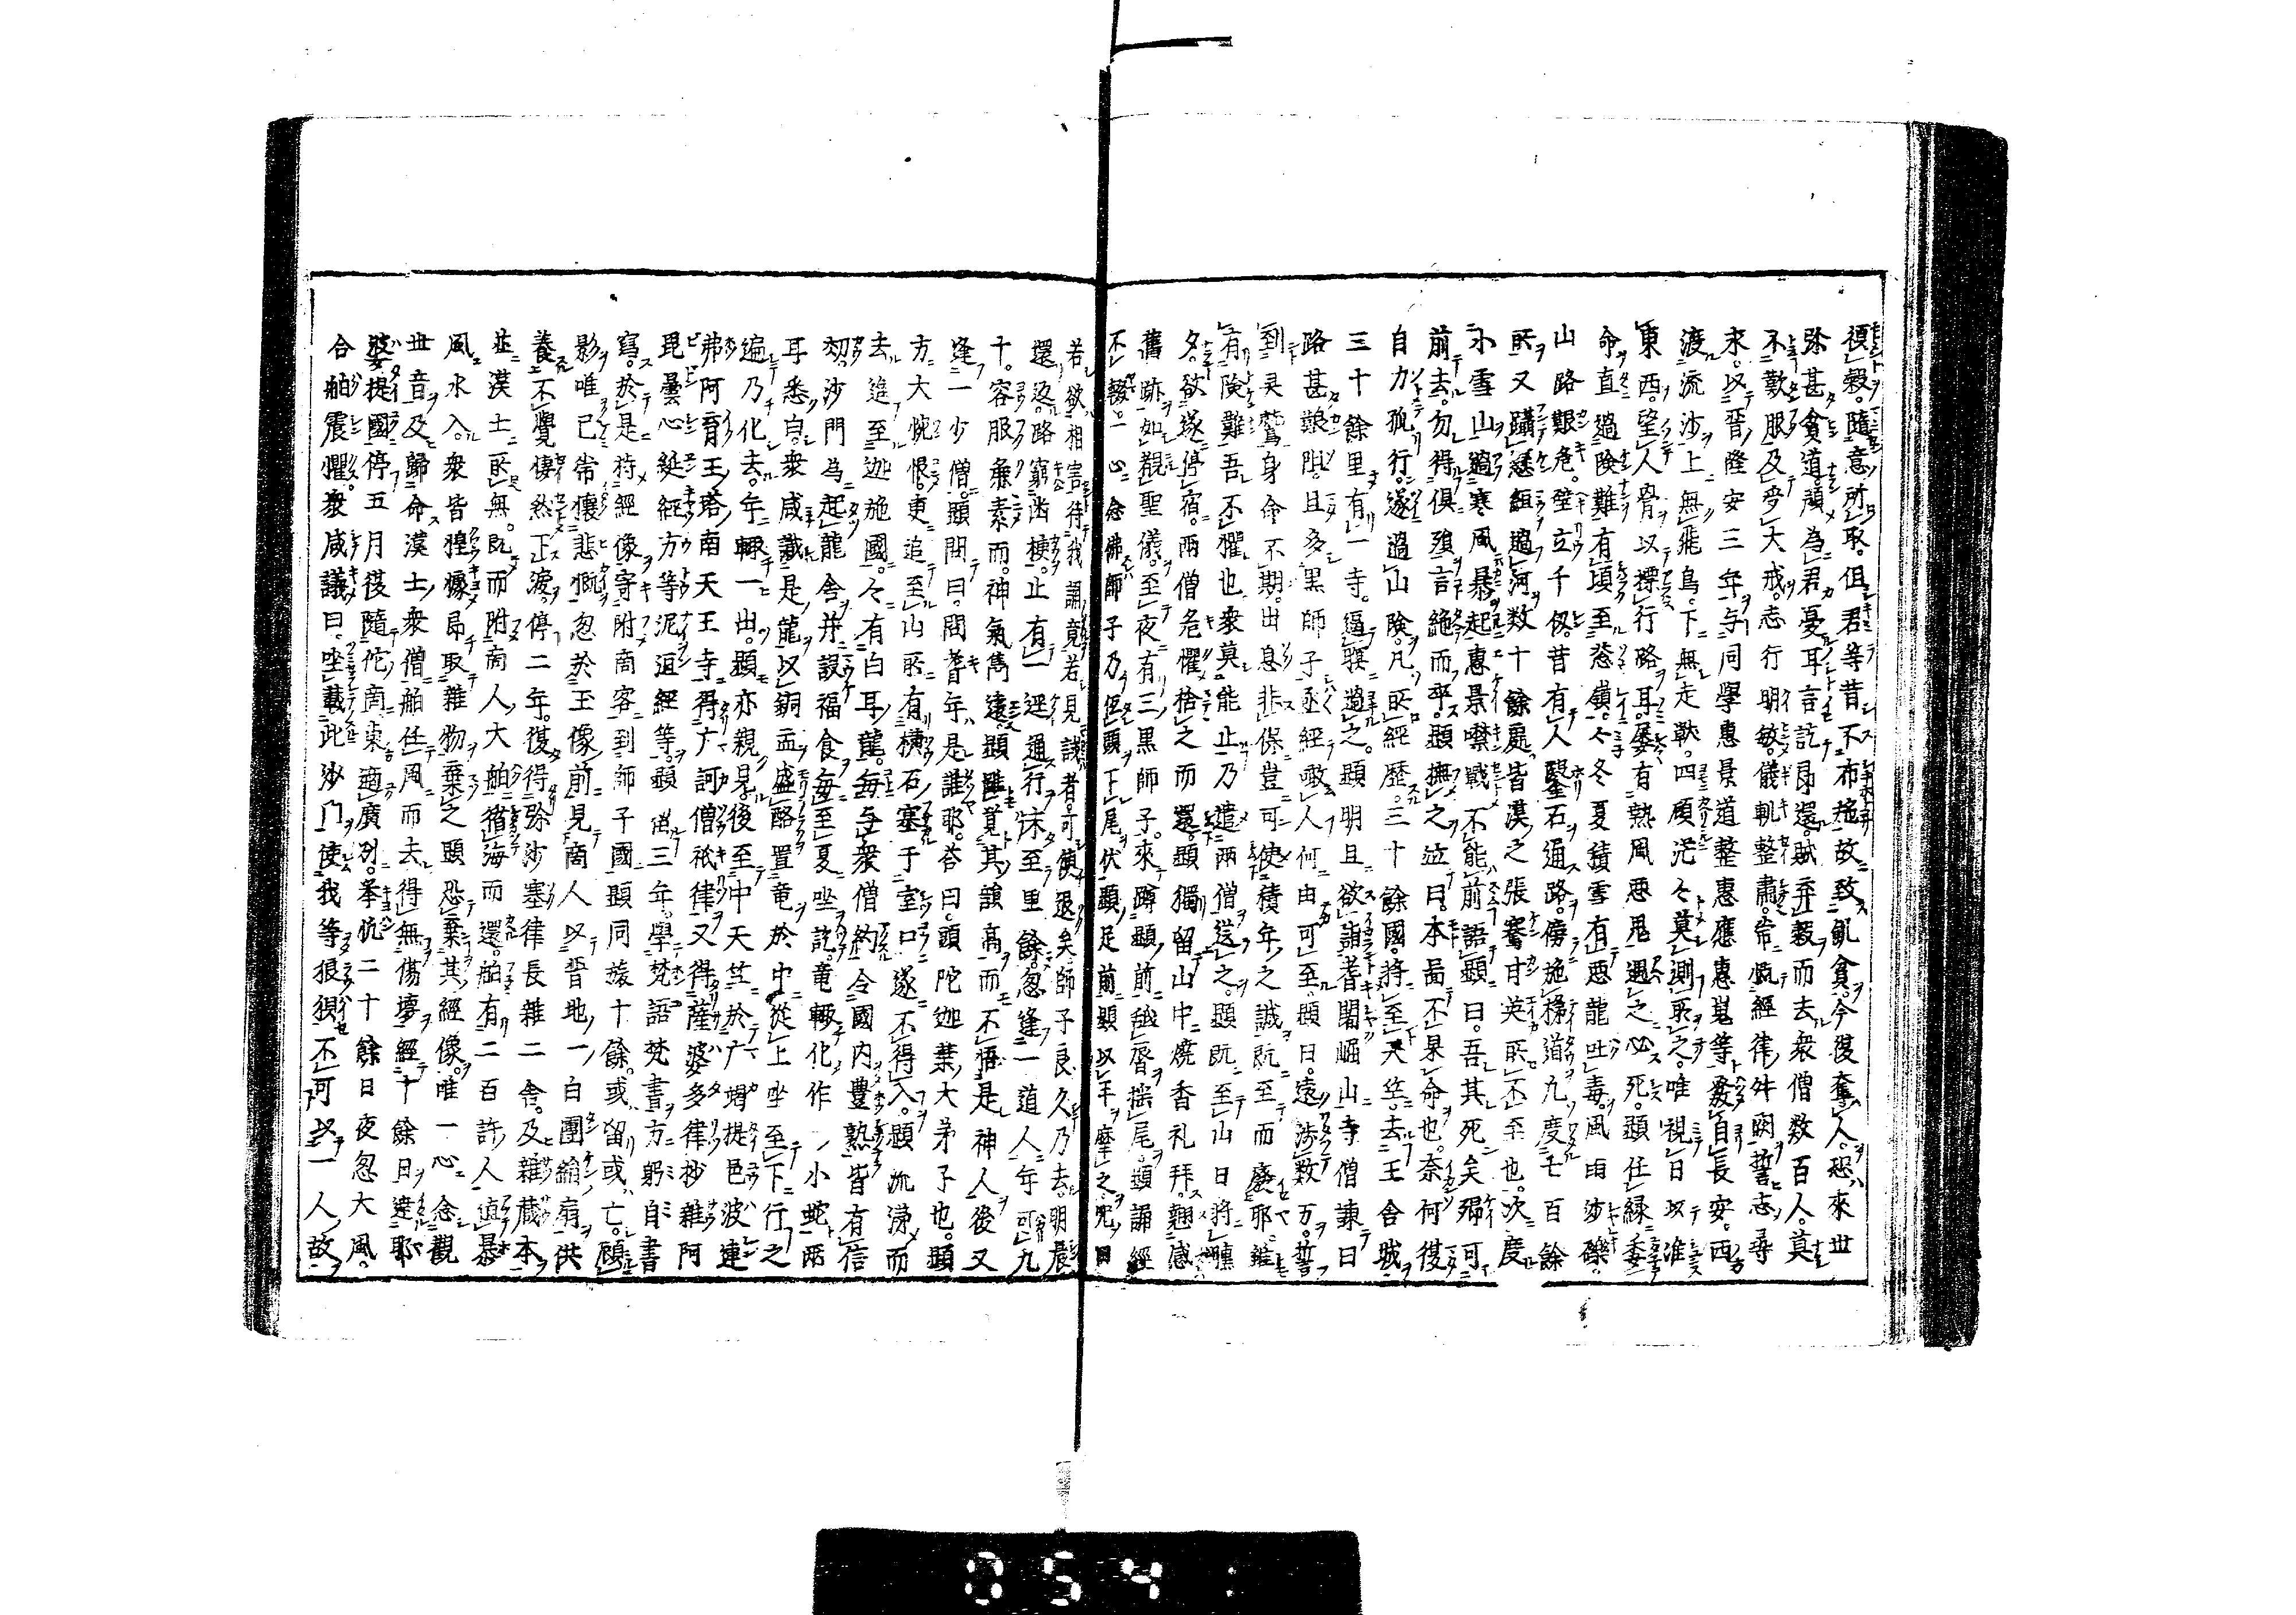 須穀。隨意所取。但君等昔不布施故致飢貧。今復奪人。恐來世
弥甚。貧道預為君憂耳。言訖即還。賊弃穀而去。衆僧数百人。莫
不歎服。及受大戒。志行明敏。儀軌整肅。常慨經律舛闕。誓志尋
求。以晉隆安三年。与同學惠景道整惠應惠嵬等。發自長安。西
渡流沙。上無飛鳥。下無走獣。四顧茫々。莫測所之。唯視日以准
東西。望人骨以標行路耳。屡有熱風悪鬼。遇之必死。顕任縁委
命。直過險難。有頃至葱嶺。々冬夏積雪。有悪龍吐毒。風雨沙礫。
山路艱危。壁立千仭。昔有人鑿石通路。傍施梯道。凡度七百餘
所。又躡懸絙過河数十餘處。皆漢之張騫甘英所不至也。次度
小雪山。遇寒風暴起。惠景噤戰不能前。語顕曰。吾其死矣。卿可
前去。勿得俱殞。言絶而卒。顕撫之泣曰。本啚不果。命也。奈何。復
自力孤行。遂過山険。凡所經歴。三十餘國。将至天竺。去王舎城
三十餘里。有一寺。逼暝過之。顕明旦欲詣耆闍崛山。寺僧諫曰
路甚艱阻。且多黒師子。亟經噉人。何由可至。顕曰。遠渉数万。誓
到㚑鷲。身命不期。出息非保。豈可使積年之誠既至而廢耶。雖
有険難。吾不懼也。衆莫能止。乃遣両僧送之。顕既至山。日将曛
夕。欲遂停宿。両僧危懼。捨之而還。顕獨留山中。焼香礼拜。翹感
舊跡。如覩聖儀。至夜有三黒師子。來蹲顕前。䑛脣揺尾。顕誦經
不輟。一心念佛。師子乃低頭下尾。伏顕足前。顕以手摩之。咒曰
若欲相害。待我誦竟。若見試者。可使退矣。師子良久乃去。明晨
還返。路窮幽梗。止有一逕通行。未至里餘。忽逢一道人。年可九
十。容服麁素。而神氣儁遠。顕雖覚其韻高。而不悟是神人。後又
逢一少僧。顕問曰。向耆年是誰耶。荅曰。頭陀迦葉大弟子也。顕
方大惋恨。更追至山所。有横石塞于室口。遂不得入。顕流涕而
去。進至迦施國。々有白耳龍。毎与衆僧約。令國内豊熟。皆有信
効。沙門為起龍舎。并設福食。毎至夏坐訖。竜輙化作一小蛇。両
耳悉白。衆咸識是龍。以銅盂盛酪。置竜於中。從上坐至下行之
遍。乃化去。年輙一出。顕亦親見。後至中天竺。於广竭提邑波連
弗阿育王塔南天王寺。得广訶僧祇律。又得薩婆多律抄雑阿
毘曇心綖經方等泥洹經等。顕留三年。學梵語梵書。方躬自書
寫。於是持經像。寄附商客。到師子國。顕同旅十餘。或留或亡。顧
影唯已。常懷悲慨。忽於玉像前。見商人以晋地一白團絹扇供
養。不覺悽然下淚。停二年。復得弥沙塞律長雑二含。及雑蔵本。
並漢土所無。既而附商人大舶。循海而還。舶有二百許人。値暴
風水入。衆皆惶懅。即取雑物棄之。顕恐棄其經像。唯一心念觀
世音。及歸命漢土衆僧。舶任風而去。得無傷壊。經十餘日。達耶
婆提國。停五月。復隨佗商。東適廣州。挙帆二十餘日。夜忽大風。
合舶震懼。衆咸議曰。坐載此沙門。使我等狼狽。不可以一人故